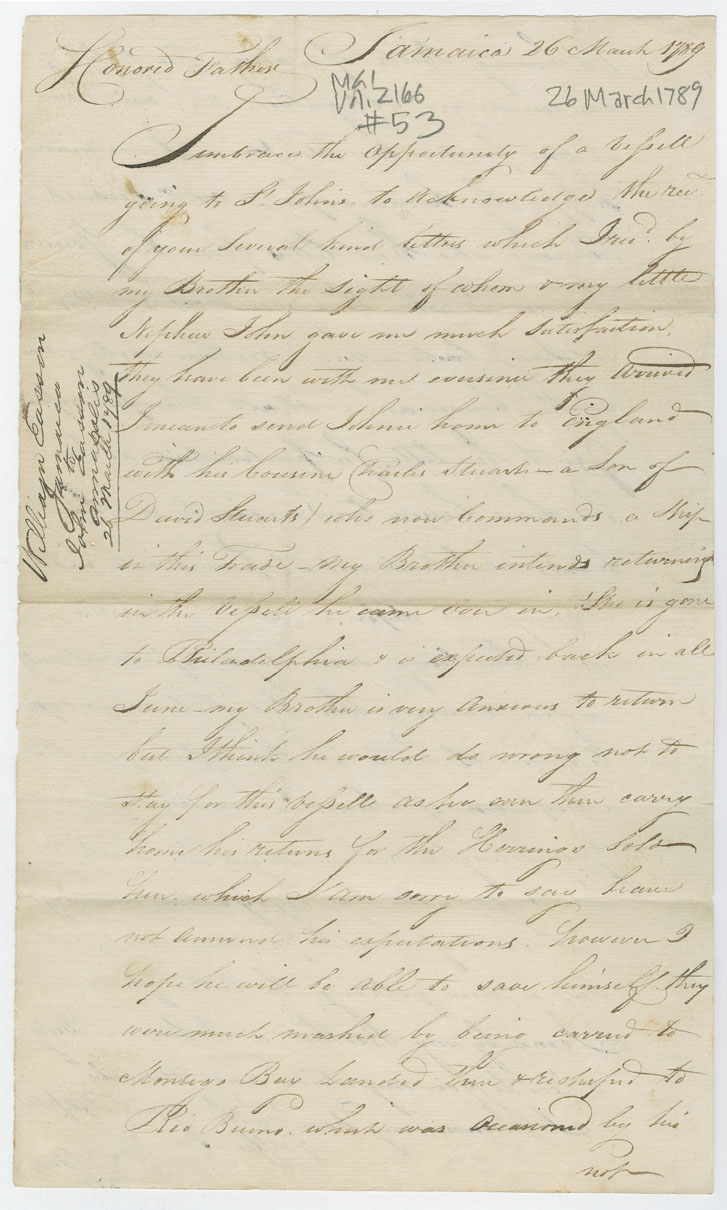 Jamaica 26 March 1789
Honored Father
MG1
Vol. 2166
#53
26 March 1789
I embrace the Opportunity of a Vessell
going to St Johns to Acknowledge the recet
of your Several kind letters which I recd. by
my Brother the Sight of whom & my little
Nephew John gave me much Satisfaction.
they have been with me ever since they Arrived
I mean to send John home to England
with his Cousin Charles Stuart – a Son of
David Stuarts) who now Commands a Ship
in this Trade – My Brother intends returning
in the Vessell he came Over in, She is gone
to Philadelphia & is expected back in all
June – my Brother is very Anxious to return
but I think he would do wrong not to
Stay for this Vessell as he can then carry
home his returns for the Herrings Sold
here. which I am sorry to say have
not answered his expectations. however I
hope he will be able to save himself they
were much mashed by being carried to
Montego Bay Landed there & reshiped to
Rio Bueno. which was Occasioned by his
not
William Easson
Jamaica
to
John Easson
Annapolis
26 March 1789